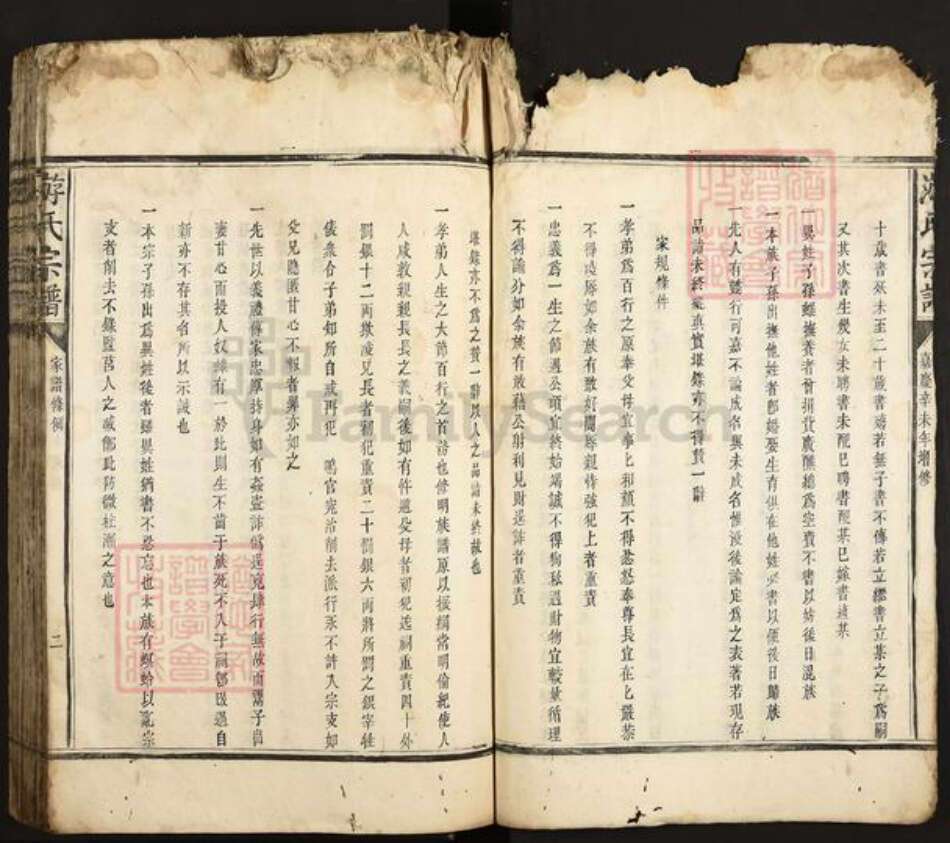 游氏宗譜
嘉慶辛未年增修
十歲書殀未至二十歲書殤若無子書不傳若立繼書立某之子為嗣
又其次書生幾女未聘書未配已聘書配某已嫁書適某
一異姓子孫螟撫養者曾捐貲費醮總為空費不書以妨後日混族
一本族子孫出撫他姓者卽婚娶生育俱在他姓必書以便後日歸族
一先人有懿行可嘉不論成名與未成名惟沒後論定為之表著若現存
品諸未終縱真實堪錄亦不得贊一辭
家規條件
一孝弟為百行之原奉父母宜事上和顏不得忿怒奉尊長宜在上嚴恭
不得凌辱如余族有敢好鬪辱親恃強犯上者重責
一忠義為一生之節遇公項宜終始竭誠不得狥私遇財物宜較量循理
不得論分如余族有敢藉公射利見財逞詐者重責
堪錄亦不為之贊一辭以人之品諸未終故也
一孝弟人生之大節百行之首諸也修明族譜原以振綱常明倫紀使人
人咸敦親親長長之義嗣後如有忤逆父母者初犯送祠重責四十外
罰銀十二兩欺凌兄長者初犯重責二十罰銀六兩將所罰之銀宰牲
儀衆合子弟知所自戒再犯 鳴官究治削去派行永不許入宗支如
父兄隱匿甘心不報者罪亦如之
一先世以義禮傳家忠厚持身如有姦盜詐偽逞兇肆行無故而鬻子賣
妻甘心而投人奴隸有一於此則生不齒于族死不入于祠卽改過自
新亦不存其名所以示誡也
一本宗子孫出為異姓後者雖異姓猶書不忍忘也本族有螟蛉以亂宗
支者削去不錄鑒莒人之滅鄫此防微杜漸之意也
游氏宗譜
家譜條例
二
FamilySearch